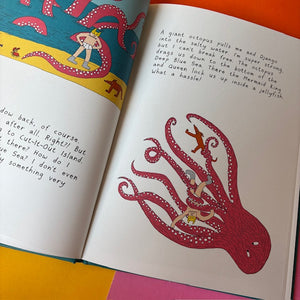 dow back, of course.
after all. Right?! But
to Cut-It-Out Island.
there? How do I
ue Sea? I don't even
ything very
A giant octopus pulls me and Django
into the salty water. I'm super strong,
but I can't break free. The octopus
drags us down to the bottom of the
Deep Blue Sea. There the Mermaid King
and Queen lock us up inside a jellyfish
what a hassle!